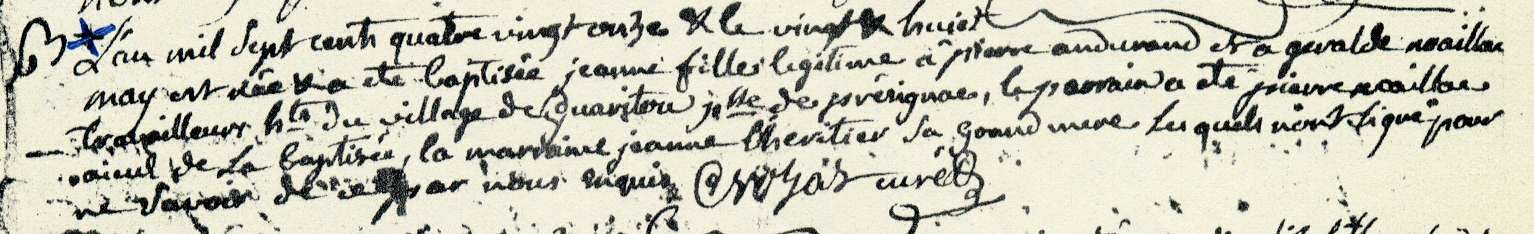 L'an mil sept cents quatre vingt onze & le vingt & huict
may est née & a eté baptisée jeanne fille legitime à pierre andurand et a geralde noaillou
travailleurs hts du village de p.sse de présignac, le parrain a eté pierre noaillou
aieul de la baptisée, la marraine jeanne lheritier sa grand mere lesquels n'ont signé pour
ne savoir de ce par nous enquis curé